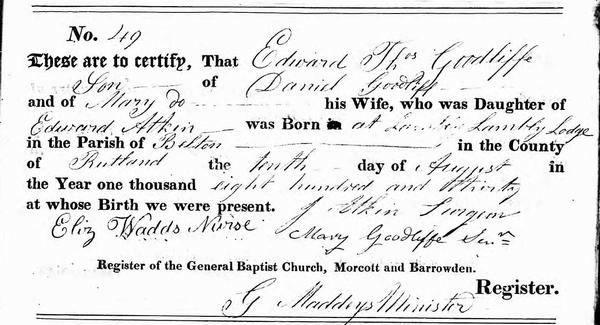 No. 49
These are to certify, That Edward Thos Goodliffe
Son of Daniel Goodliff
and of Mary do his Wife, who was Daughter of
Edward Atkin was Born in at Lambly Lodge
in the Parish of Belton in the County
of Rutland the tenth day of August in
the Year one thousand eight hundred and thirty
at whose Birth we were present. J Atkin Surgeon
Eliz Wadds Nurse Mary Goodliffe Senr
Register of the General Baptist Church, Morcott and Barrowden.
Register.
G Maddeys Minister